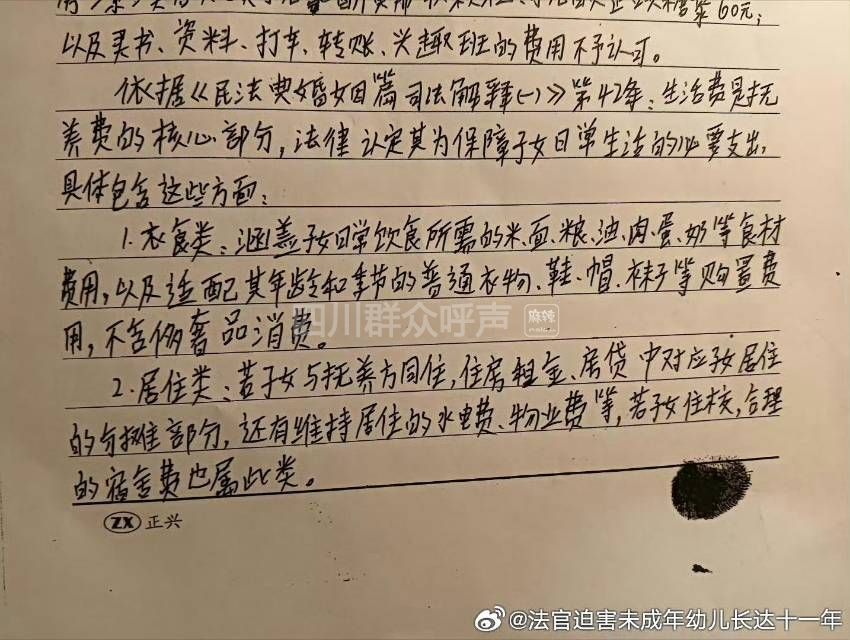 60元;
以及买书、资料、打车、转账、兴趣班的费用不予认可。
依据《民法典婚姻篇司法解释(一)》第42条:生活费是抚
养费的核心部分,法律认定其为保障子女日常生活的必要支出,
具体包含这些方面:
1.衣食类:涵盖子女日常饮食所需的米、面、粮、油、肉、蛋、奶等食材
费用,以及适配其年龄和季节的普通衣物、鞋、帽、袜子等购置费
用,不含侈奢品消费。
四川群众呼声 麻辣
2.居住类:若子女与抚养方同住,住房租金、房贷中对应子女居住
的分摊部分,还有维持居住的水电费、物业费等,若子女住校,合理
的宿舍费也属此类。
ZX 正兴
@法官迫害未成年幼儿长达十一年